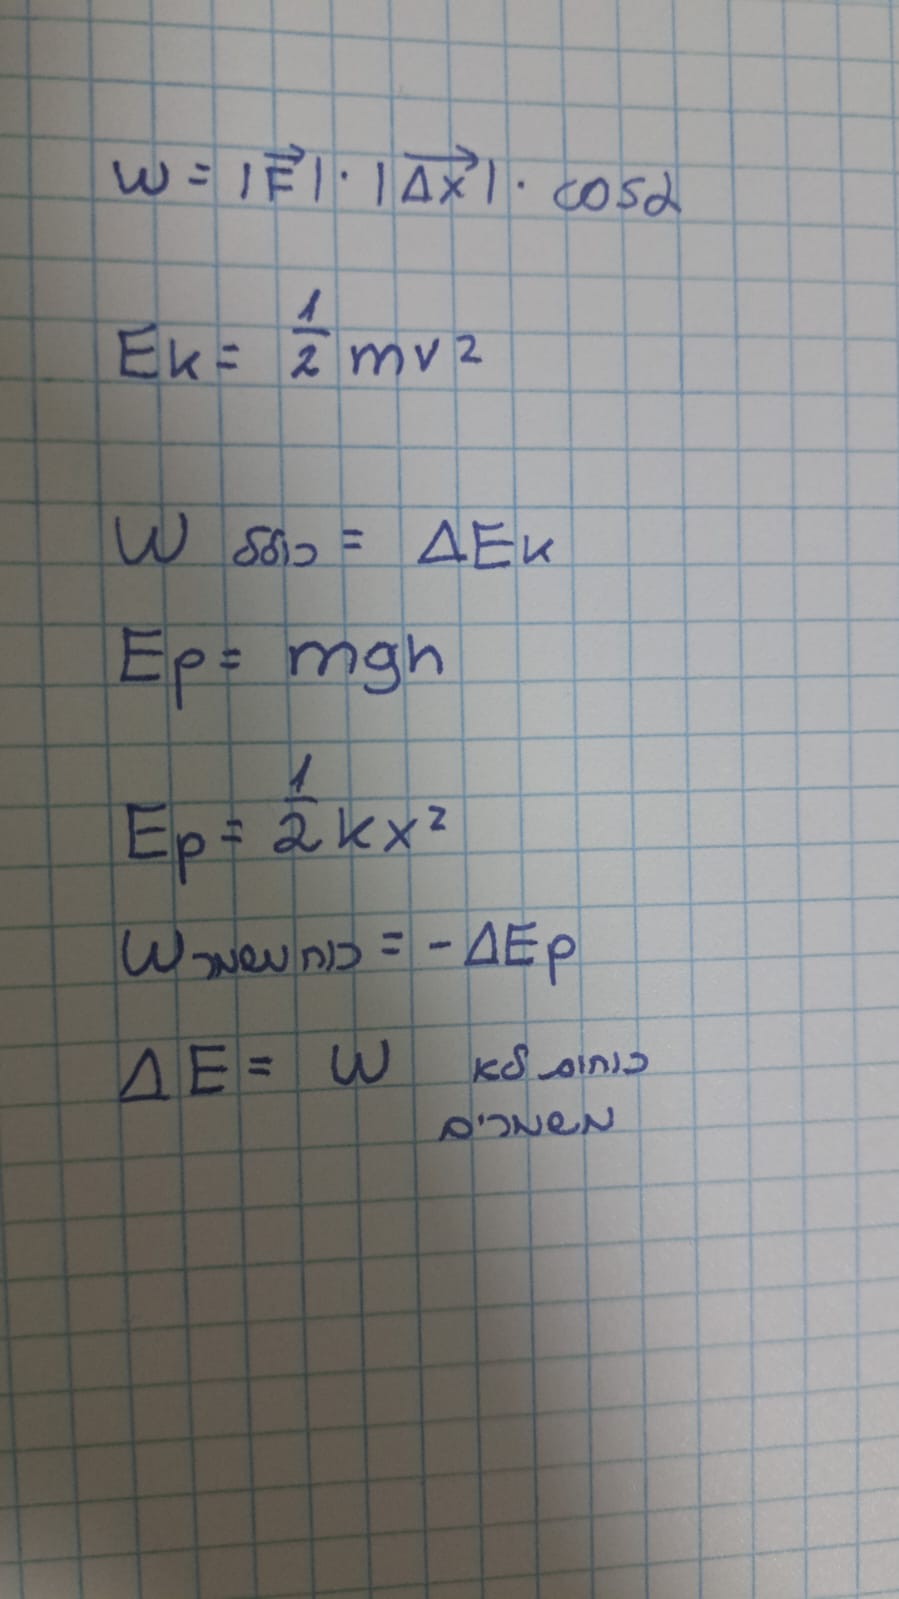 W = |F⃗| · |Δx⃗| · cosα
Ek = 1/2 mv²
W כולל = ΔEk
Ep = mgh
Ep = 1/2 kx²
W כוח משמר = -ΔEp
ΔE = W כוחות לא
משמרים